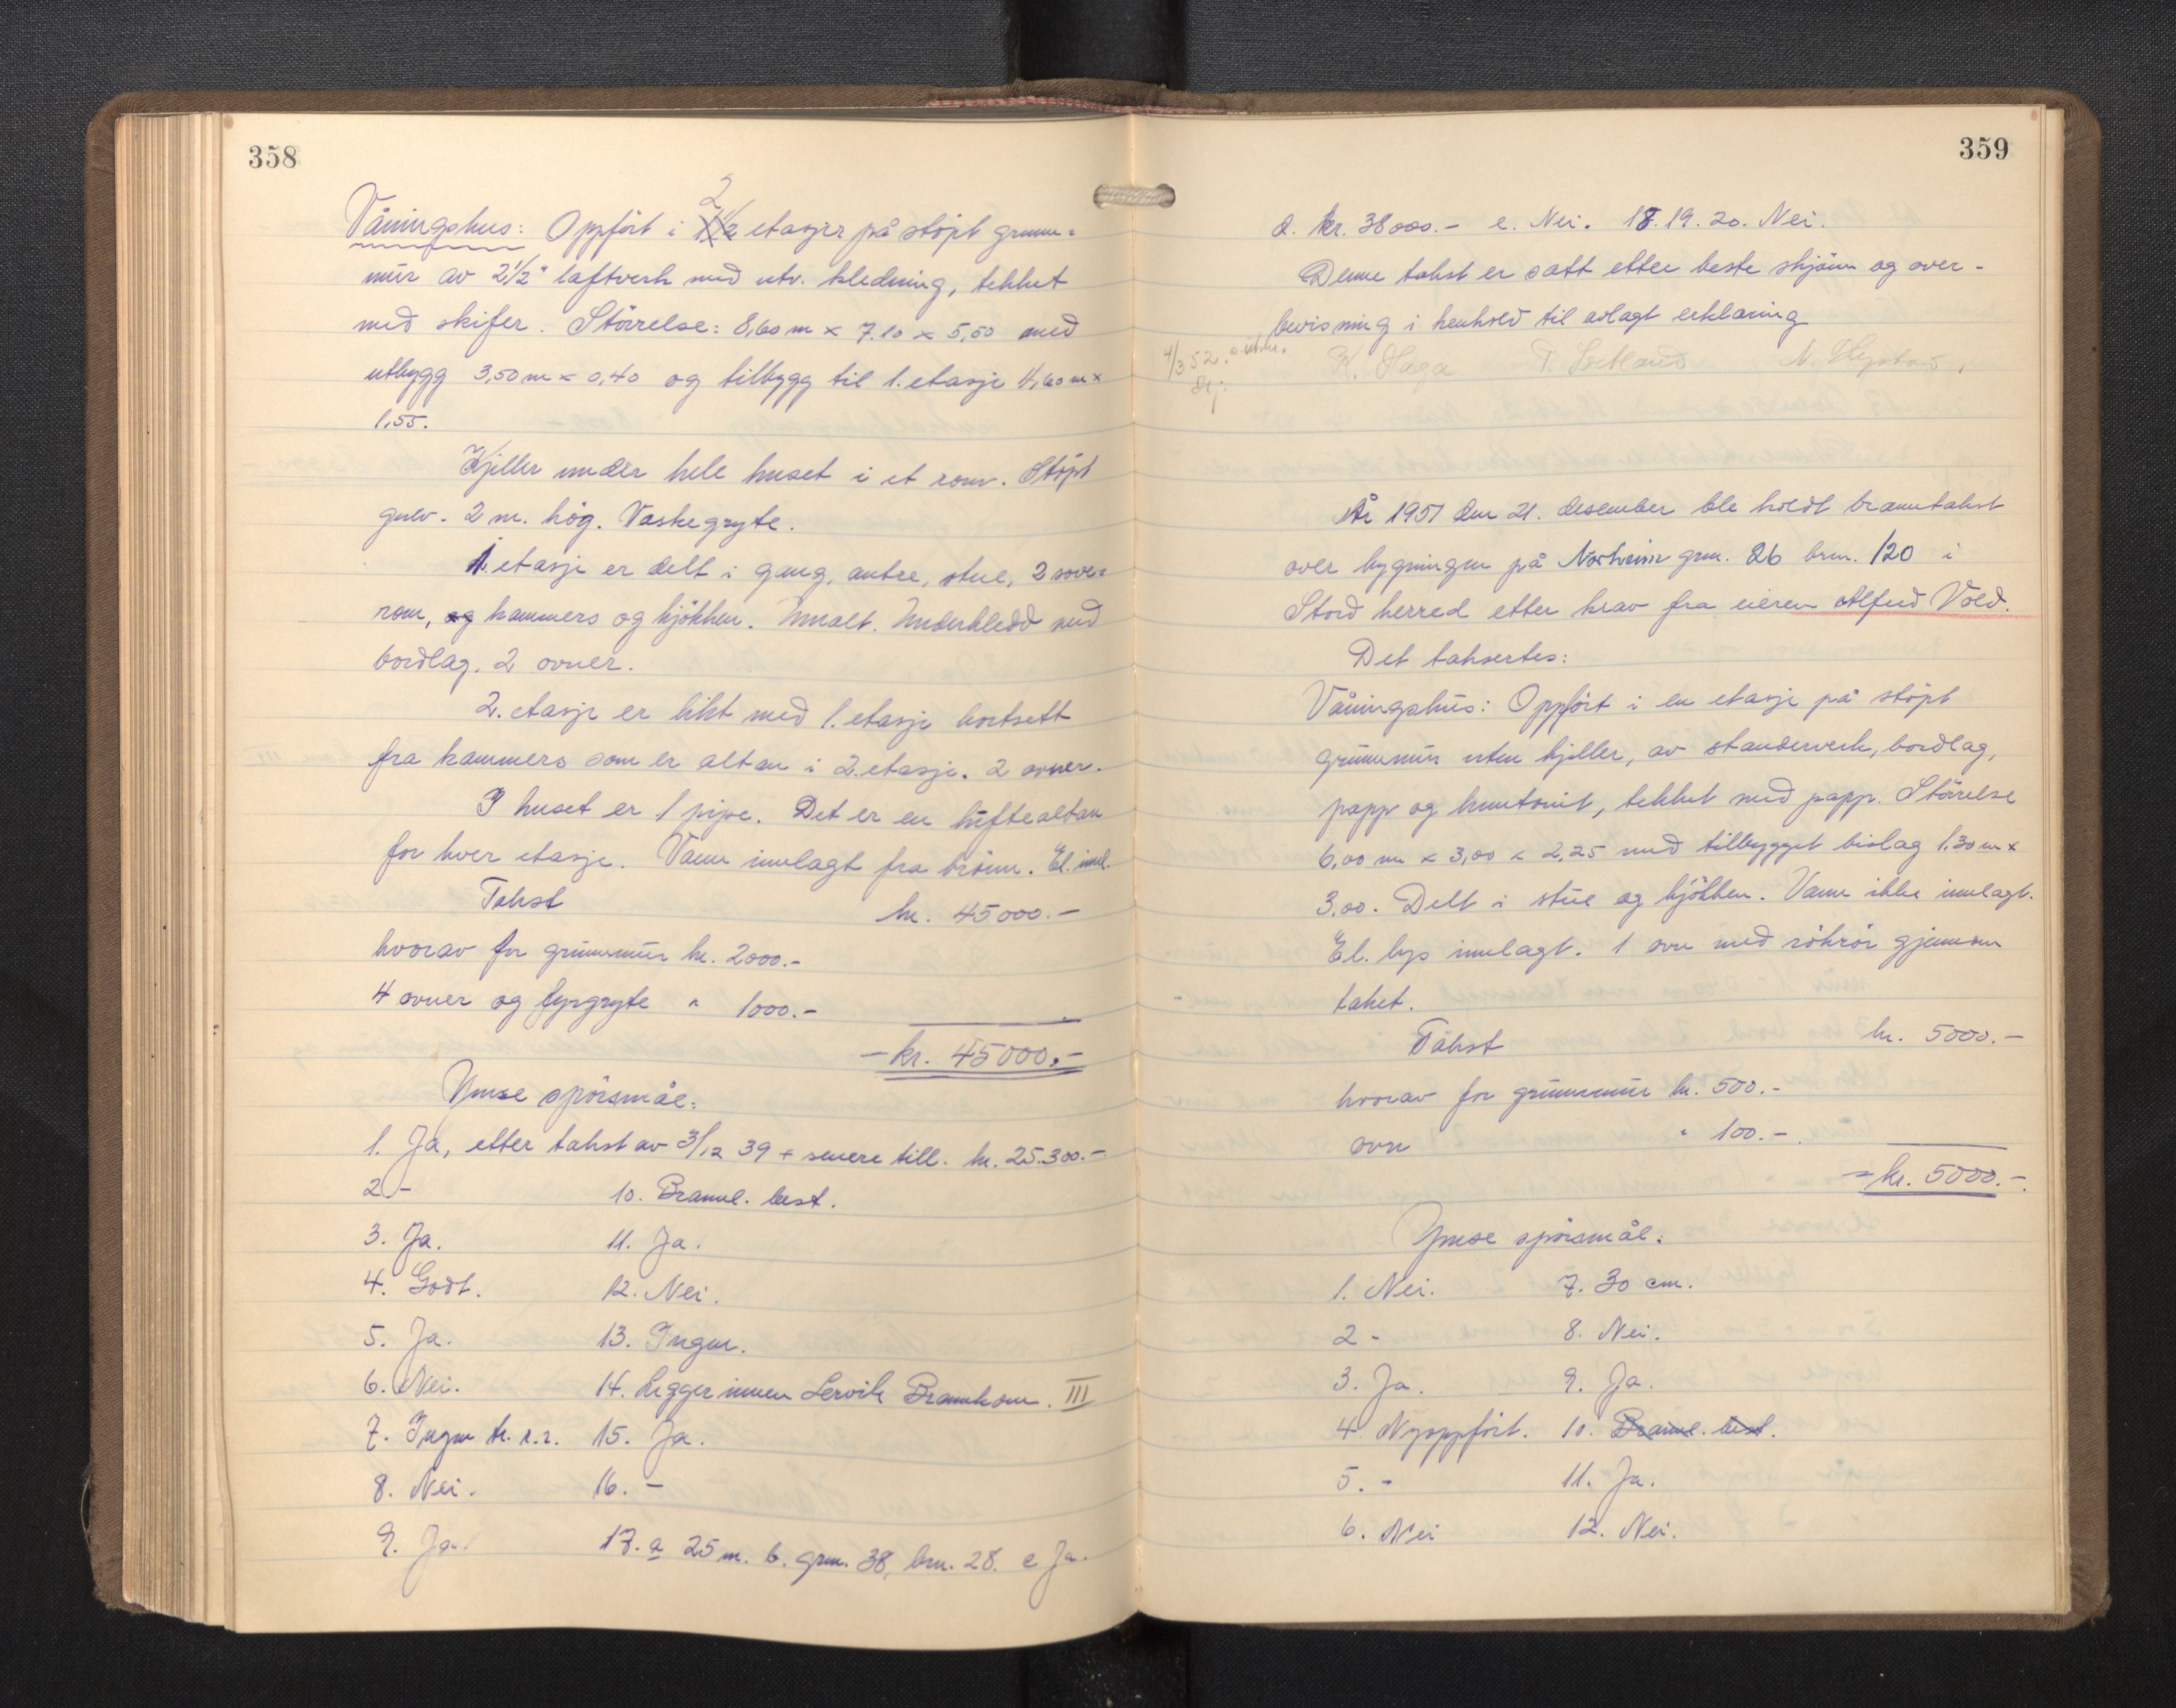 358
Våningshus: Oppført i 2 1½ etasjer på støpt grunn=
mur av 2½" laftverk med utv. kledning, tekket
med skifer. Størrelse: 8,60 m × 7.10 × 5,50 med
utbygg 3,50 m × 0,40 og tilbygg til 1. etasje 4,60 m ×
1,55.
Kjeller under hele huset i et rom. Støpt
gulv. 2 m. høg. Vaskegryte.
1. etasje er delt i gang, entre, stue, 2 sove=
rom, og kammers og kjøkken. Innalt. Underkledd med
bordlag. 2 ovner.
2. etasje er likt med 1. etasje bortsett
fra kammers som er altan i 2. etasje. 2 ovner.
I huset er 1 pipe. Det er en luftealtan
for hver etasje. Vann innlagt fra brønn. El. innl.
Takst kr. 45000.-
hvorav for grunnmur kr. 2000.-
4 ovner og fyrgryte " 1000.-
- kr. 45000.-
Ymse spørsmål:
1. Ja, etter takst av 3/12 39 + senere till. kr. 25.300.-
2 - 10. Brannl. best.
3. Ja. 11. Ja.
4. Godt. 12. Nei.
5. Ja. 13. Ingen.
6. Nei. 14. Ligger innen Lervik Brannkom. III
7. Ingen tr. r.r. 15. Ja.
8. Nei. 16. -
9. Ja. 17. a 25 m. b. grn. 38, brn. 28. c Ja.
359
d. kr. 38000.- e. Nei. 18. 19. 20. Nei.
Denne takst er satt etter beste skjønn og over-
bevisning i henhold til avlagt erklæring
4/3 52.
K. Haga
År 1951 den 21. desember ble holdt branntakst
over bygningen på Nortveim grn. 26 brn. 120 i
Stord herred etter krav fra eieren Alfred Vold.
Det taksertes:
Våningshus: Oppført i en etasje på støpt
grunnmur uten kjeller, av standerverk, bordlag,
papp og huntonit, tekket med papp. Størrelse
6,00 m × 3,00 × 2,25 med tilbygget bislag 1,30 m ×
3,00. Delt i stue og kjøkken. Vann ikke innlagt.
El. lys innlagt. 1 ovn med røkrør gjennom
taket.
Takst kr. 5000.-
hvorav for grunnmur kr. 500.-
ovn " 100.-
- kr. 5000.-
Ymse spørsmål:
1. Nei. 7. 30 cm.
2 - 8. Nei.
3. Ja. 9. Ja.
4. Nyoppført. 10. Brannl. best.
5. - 11. Ja.
6. Nei 12. Nei.